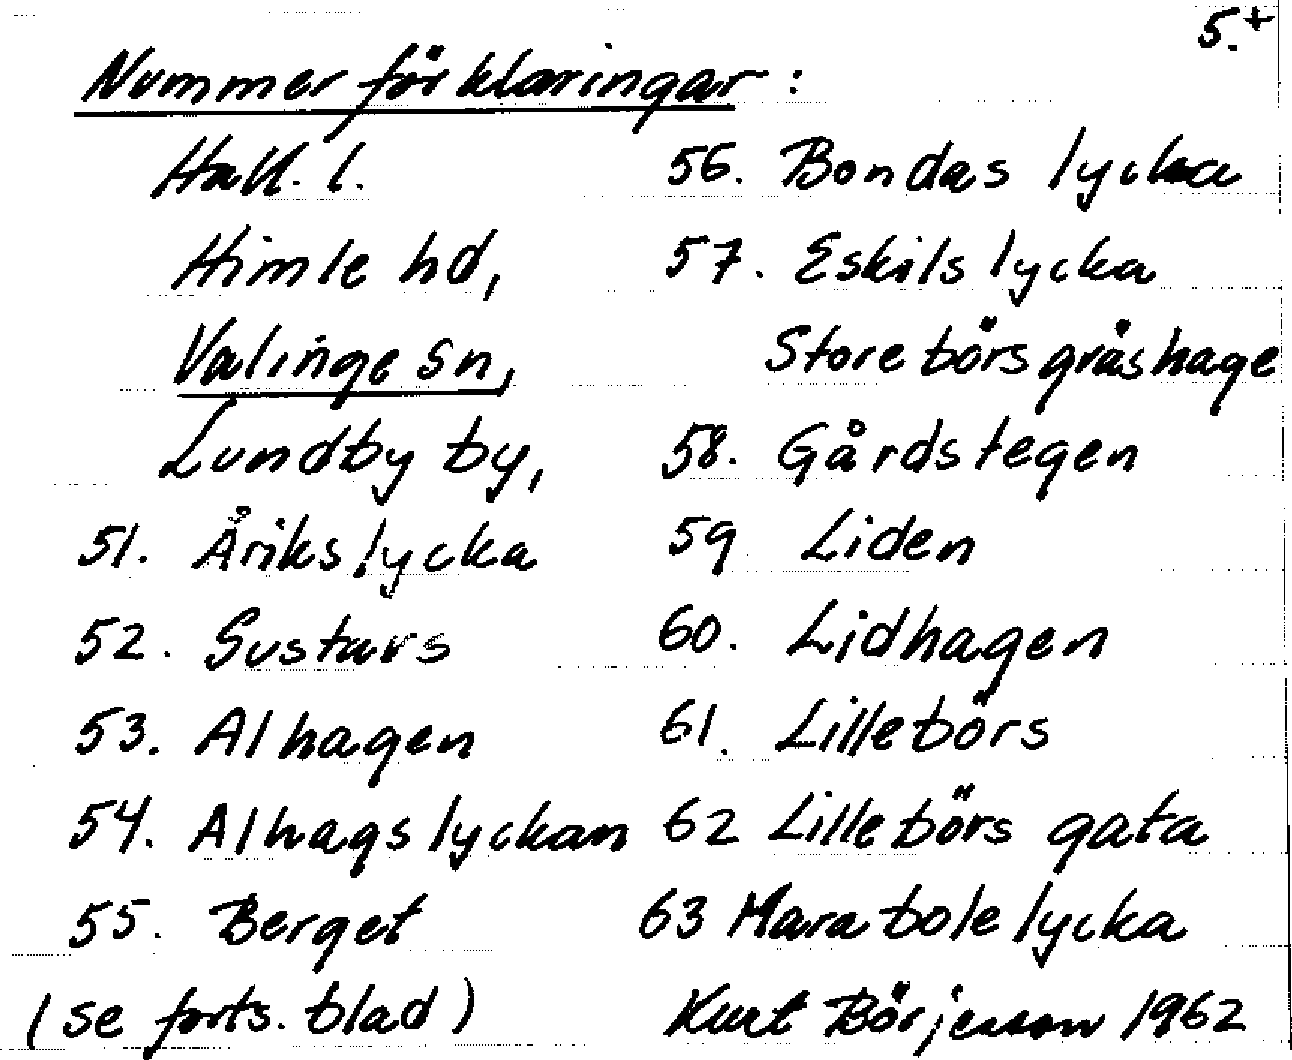 5.+
Nummer förklaringar:
Hall. l.
Himle hd,
Valinge sn,
Lundby by,
51. Årikslycka
52. Gustavs
53. Alhagen
54. Alhagslyckan
55. Berget
(se forts. blad)
56. Bondas lycka
57. Eskilslycka
Storebörs gräshage
58. Gårdstegen
59 Liden
60. Lidhagen
61. Lillebörs
62 Lillebörs gata
63 Marabolelycka
Kurt Börjesson 1962